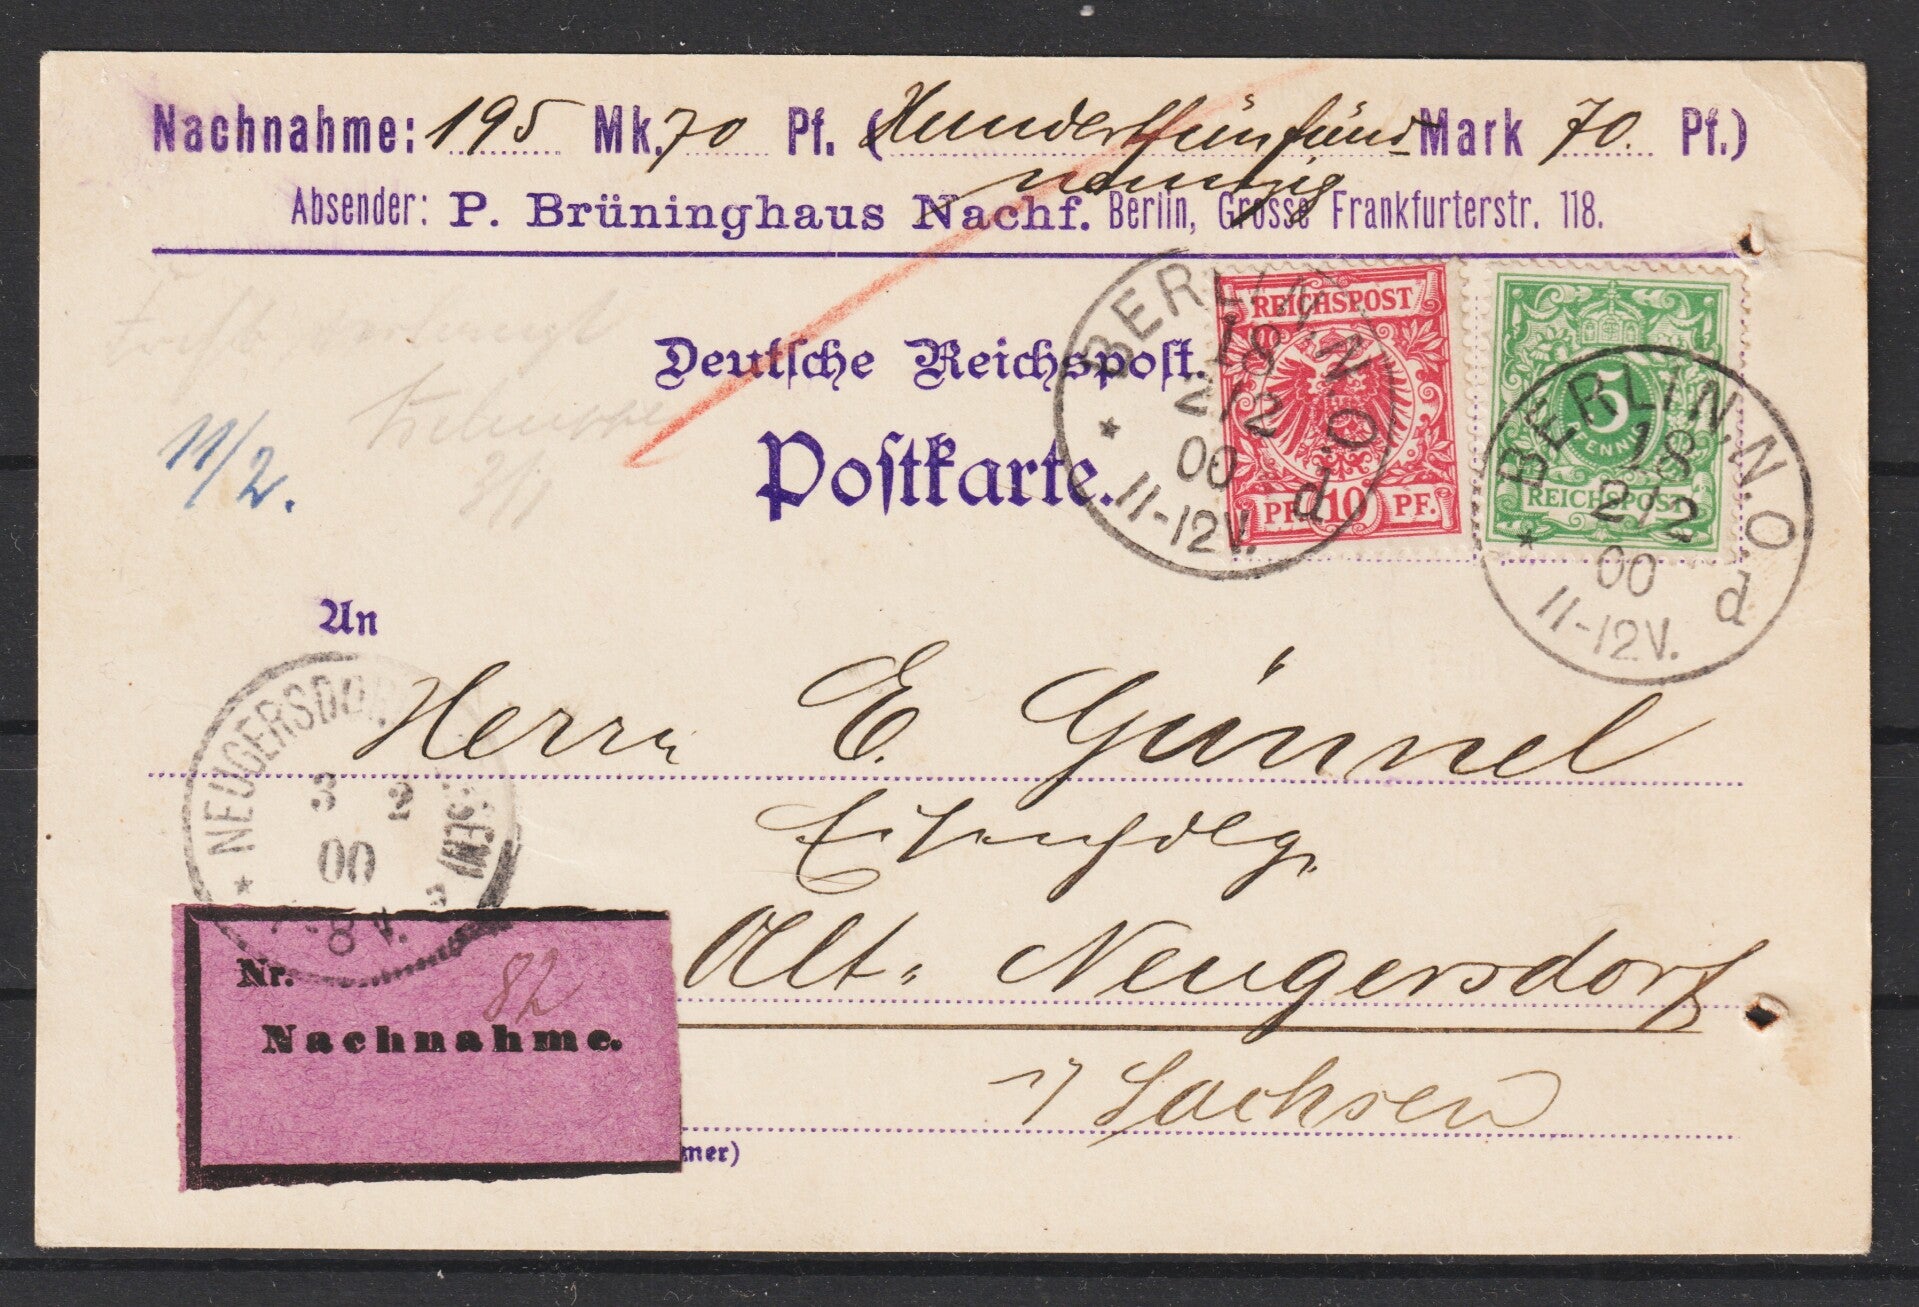 Nachnahme: 195 Mk. 70 Pf. (Hundertfünfund Mark 70. Pf.)
neunzig
Absender: P. Brüninghaus Nachf. Berlin, Grosse Frankfurterstr. 118.
Deutsche Reichspost.
Postkarte.
11/2.
3/1
REICHSPOST
PF. 10 PF.
5
PFENNIG
REICHSPOST
BERLIN N.O.
18
2/2
00
11-12V.
d
BERLIN.N.O
18
2/2
00
11-12V.
d
An
Herrn E. Günnel
Eisenhdlg.
Alt-Neugersdorf
i/ Sachsen
NEUGERSDORF
3 2
00
8 V.
Nr. 82
Nachnahme.
mer)